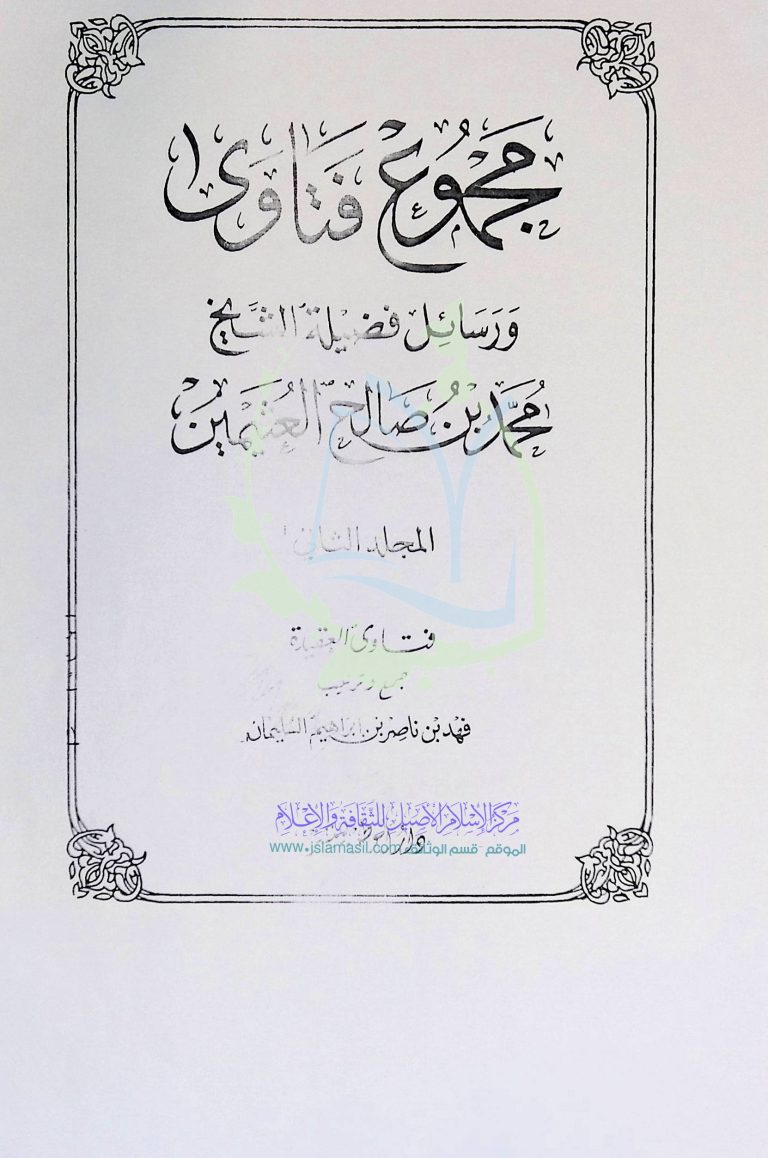 مجموع فتاوى
ورسائل فضيلة الشيخ
محمد بن صالح العثيمين
المجلد الثاني
فتاوى العقيدة
جمع وترتيب
فهد بن ناصر بن إبراهيم السليمان
مركز الإسلام الأصيل للثقافة والإعلام
دار
الموقع - قسم الوثائق www.islamasil.com